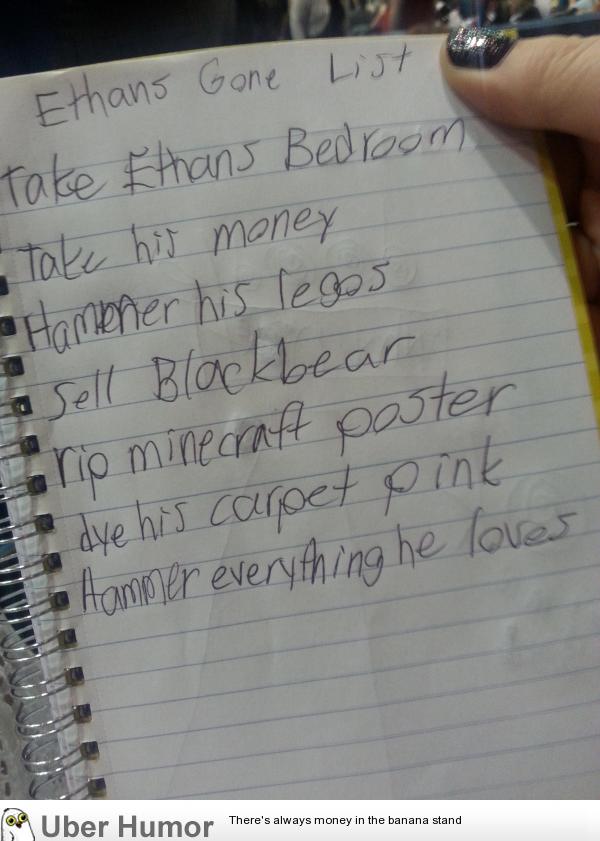 Ethans Gone List
Take Ethans Bedroom
Take his money
Hammer his legos
Sell Blackbear
rip minecraft poster
dye his carpet pink
Hammer everything he loves
Uber Humor
There's always money in the banana stand